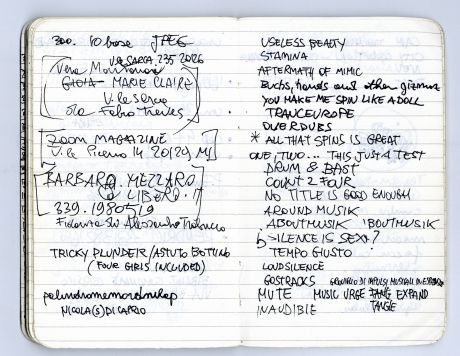 300. 10 base JPEG
V.LE SARCA. 235 20126
Vera
GIOIA MARIE CLAIRE
V.le Sarca
ZOOM MAGAZINE
V.le 14 20129 MI
BARBARA. MEZZARO
@ LIBERO. IT
339. 1980519
Alessandro
TRICKY PLUNDEIR / ASTUTO BOTTINO
(FOUR GIRLS INCLUDED)
NICOLA(S) DI CARLO
USELESS BEAUTY
STAMINA
AFTERMATH OF MIMIC
hands and other gizmos
YOU MAKE ME SPIN LIKE A DOLL
TRANCEUROPE
OVERDUBS
* ALL THAT SPINS IS GREAT
ONE, TWO... THIS JUST A TEST
DRUM & BAST
COUNT 2 FOUR
NO TITLE IS GOOD ENOUGH
AROUND MUSIK
ABOUTMUSIK 'BOUTMUSIK
SILENCE IS SEXY?
TEMPO GIUSTO
LOUDSILENCE
GOSTRACKS GROVIGLIO DI IMPULSI MUSICALI IN
MUTE MUSIC URGE EXPAND
TANGLE
INAUDIBLE